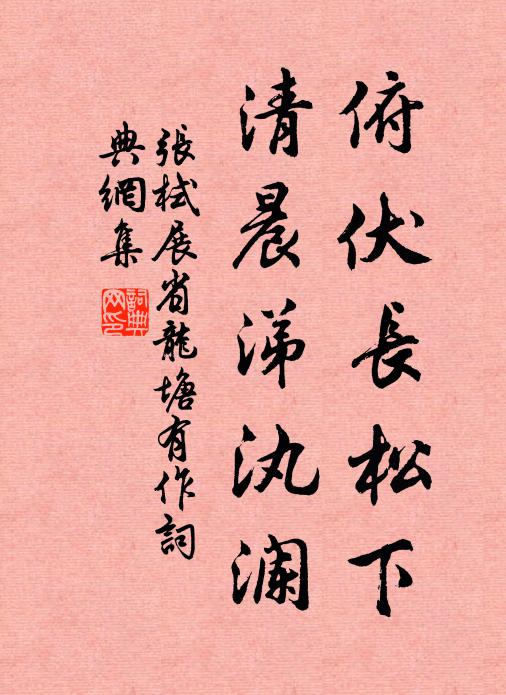 俯伏長松下
清晨涕汍瀾
張栻展省龍塘有作詞
典網集
詞典
网印